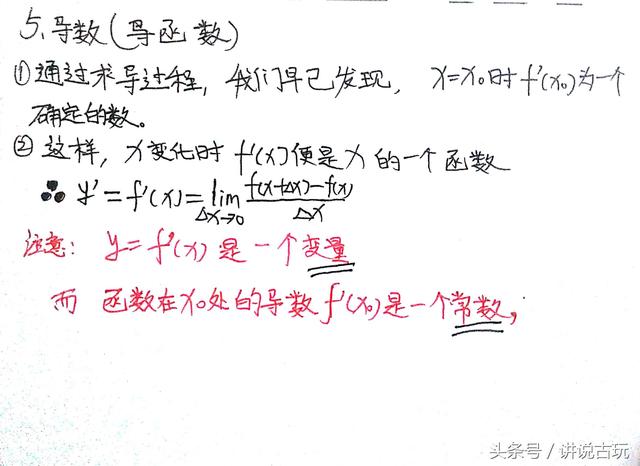 5. 导数(导函数)
①通过求导过程, 我们早已发现, x=x₀时f'(x₀)为一个
确定的数。
② 这样, x变化时 f'(x)便是x的一个函数
∴ y'=f'(x)=lim Δx→0 f(x+Δx)-f(x) / Δx
注意: y=f'(x) 是一个变量
而 函数在x₀处的导数f'(x₀)是一个常数,
头条号 / 讲说古玩